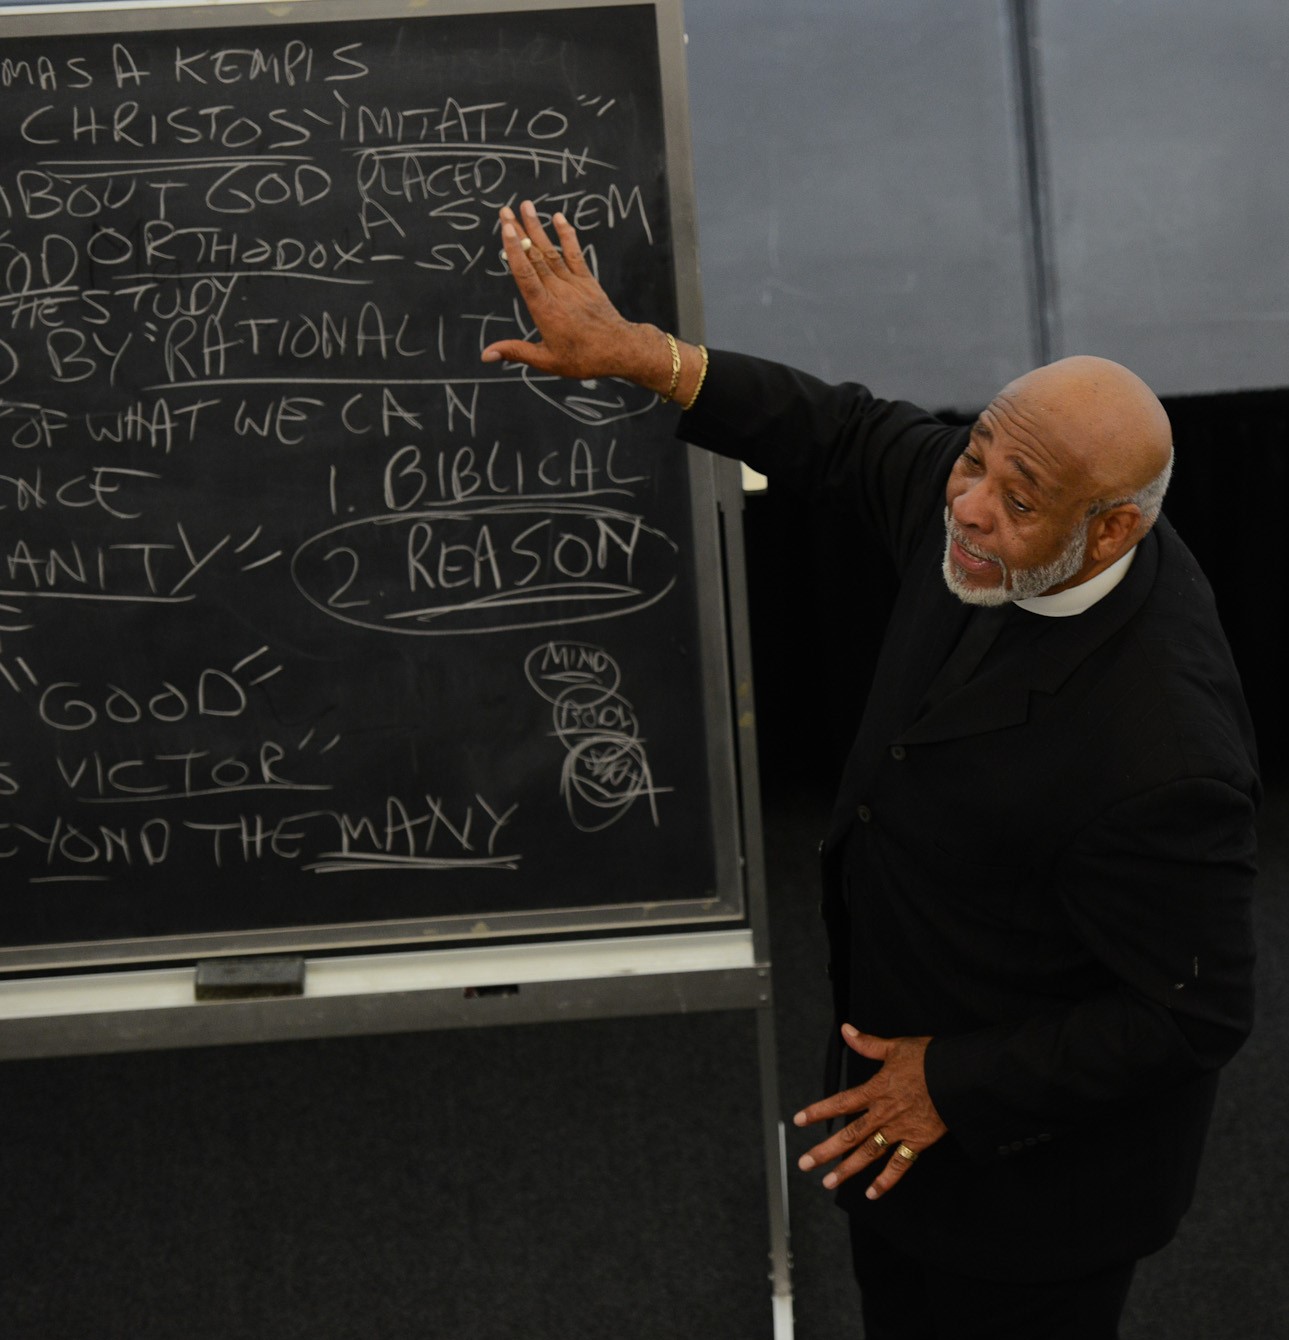 MAS A KEMPIS
CHRISTOS "IMITATIO"
ABOUT GOD PLACED IN
A SYSTEM
OD ORTHODOX - SYS
HE STUDY.
BY "RATIONALITY
OF WHAT WE CAN
ENCE
1. BIBLICAL
ANITY"
2. REASON
"GOOD"
MIND
BODY
S VICTOR"
EYOND THE MANY